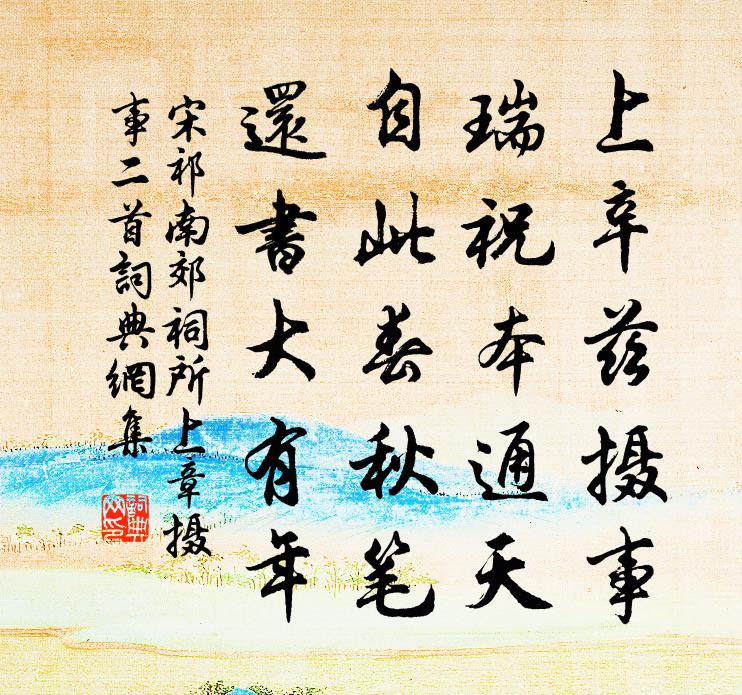 上辛兹摄事
瑞祝本通天
自此春秋笔
還書大有年
宋祁南郊祠所上章摄
事二首詞典網集
詞典網印